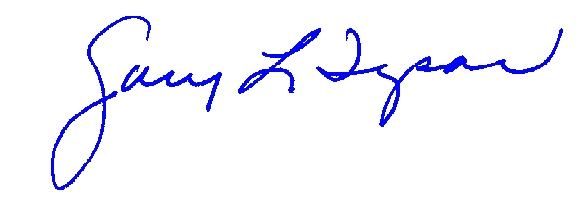 Gary L Tyson